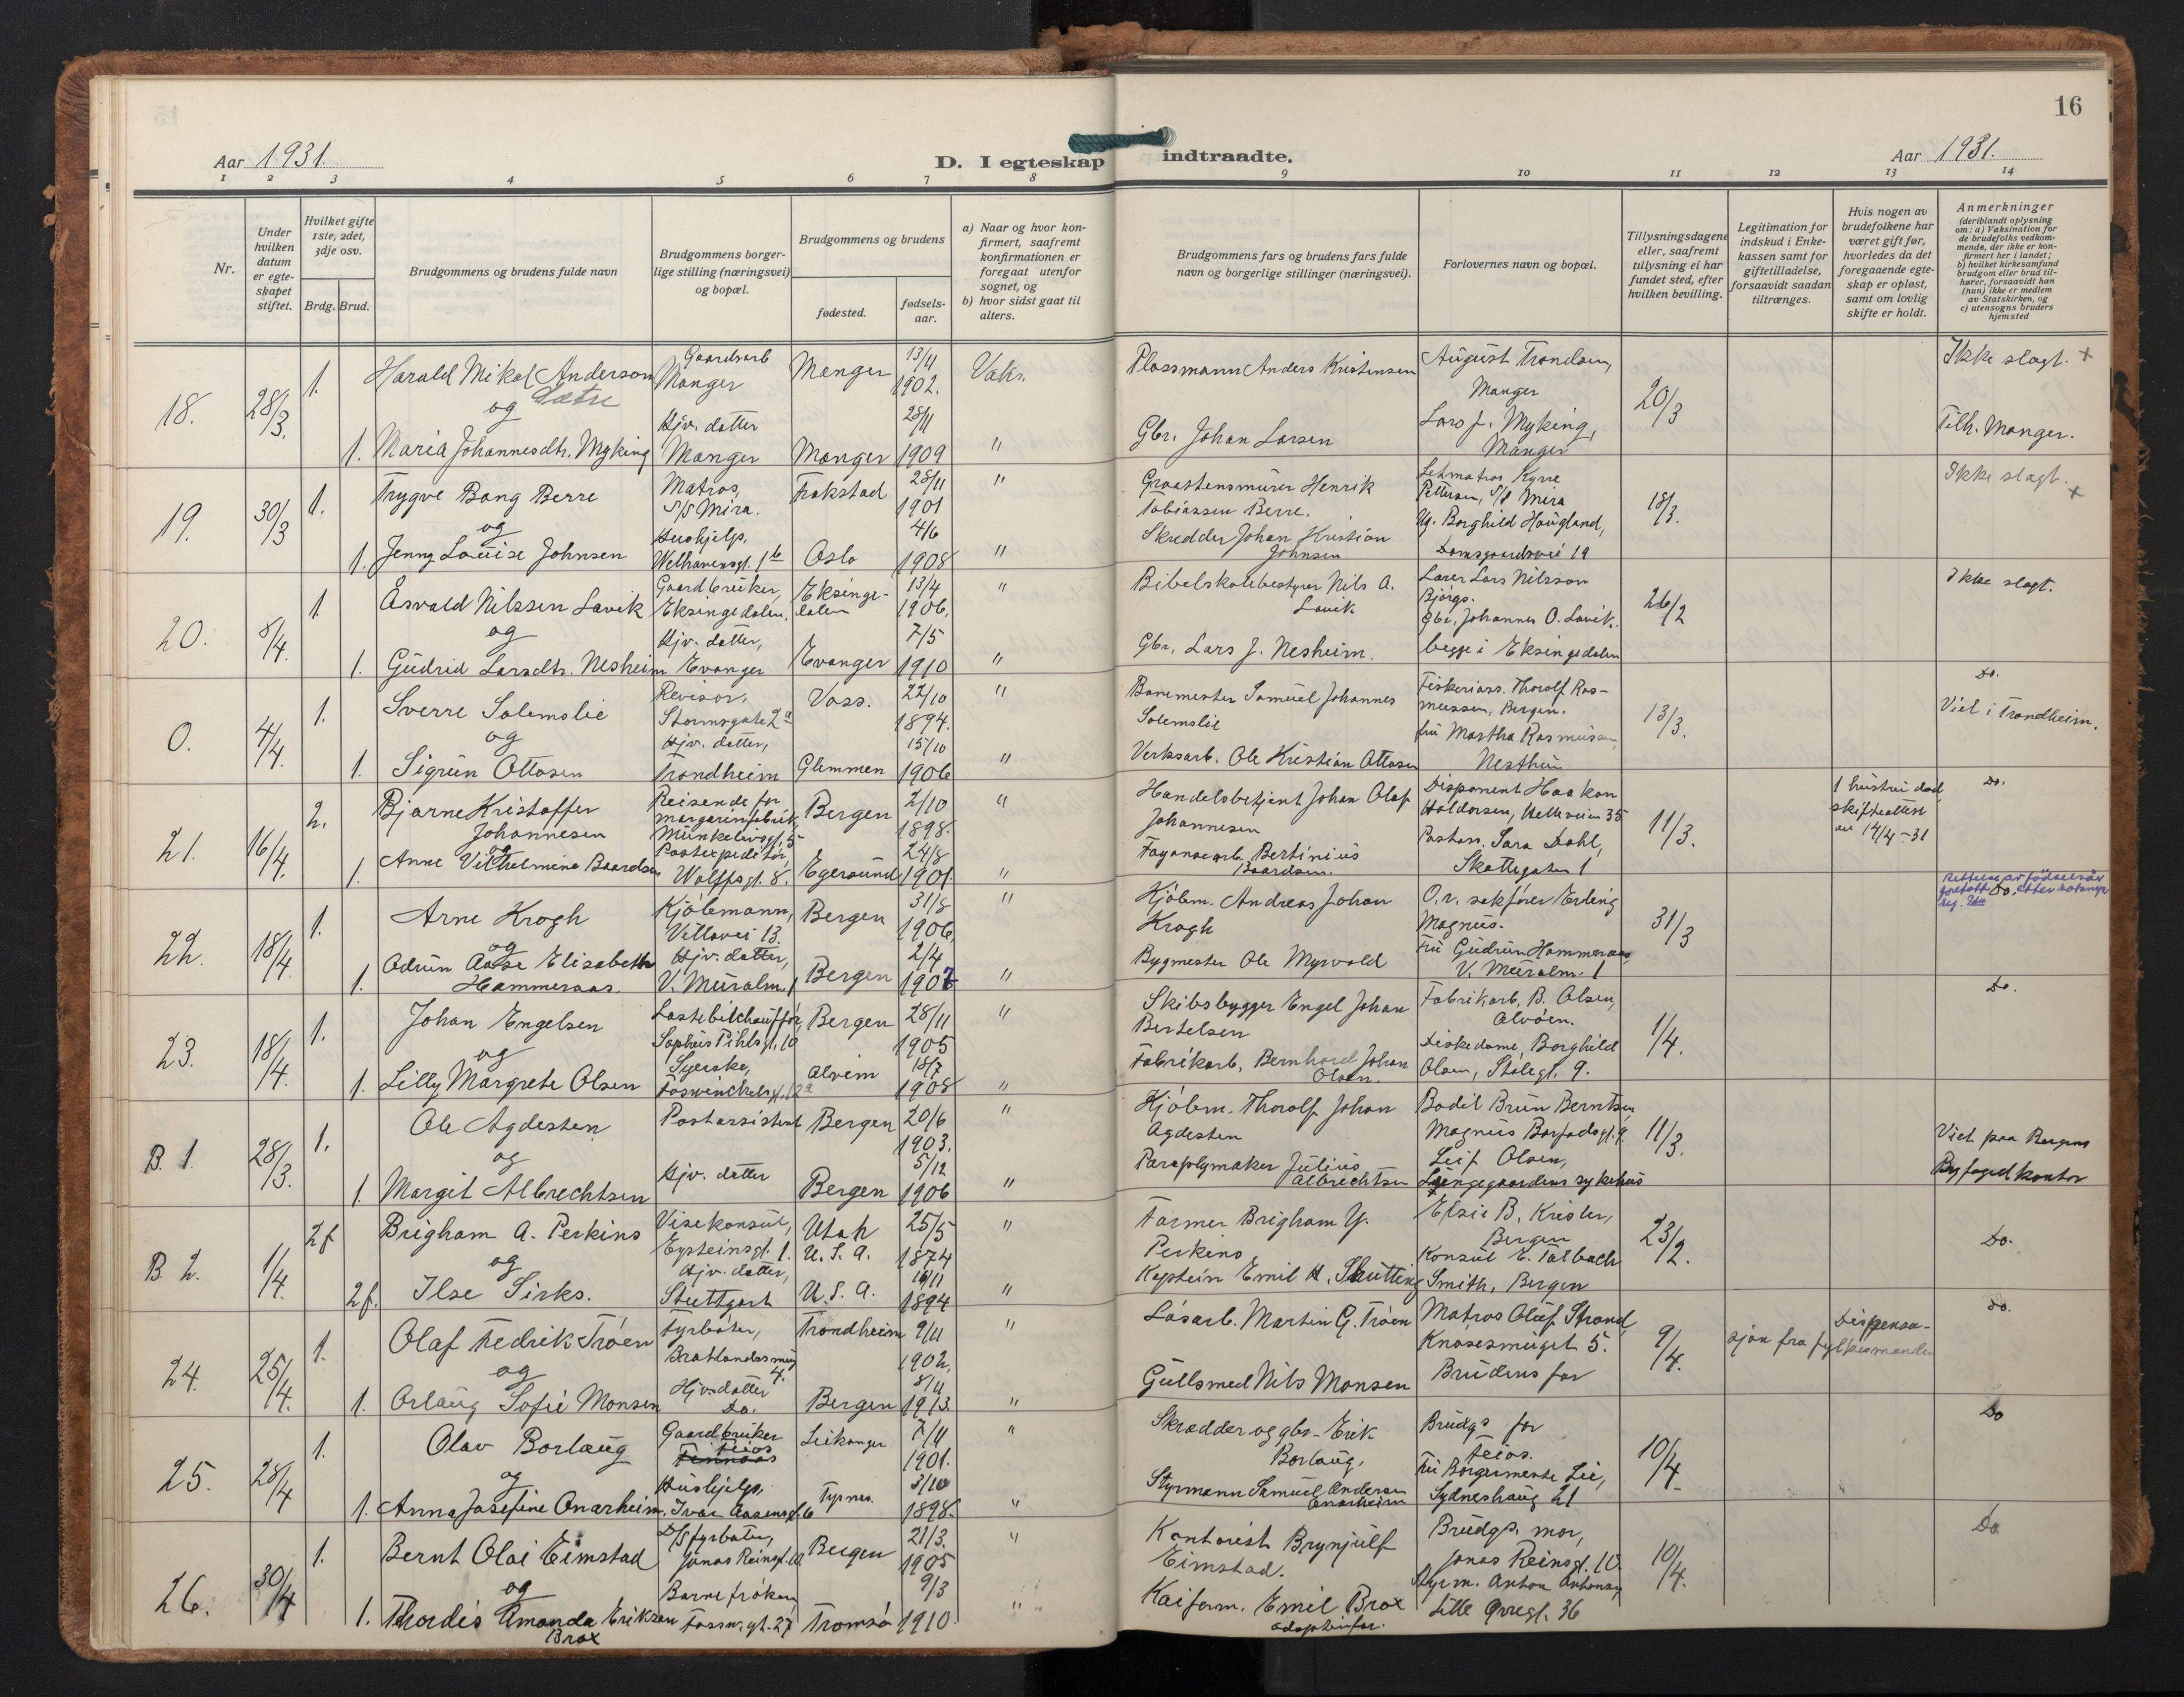 16
Aar 1931.
D. I egteskap indtraadte.
Aar 1931.
1 2 3 4 5 6 7 8 9 10 11 12 13 14
Nr.
Under hvilken datum er egteskapet stiftet.
Hvilket gifte 1ste, 2det, 3dje osv.
Brdg. Brud.
Brudgommens og brudens fulde navn
Brudgommens borgerlige stilling (næringsvei) og bopæl.
Brudgommens og brudens
fødested.
fødselsaar.
a) Naar og hvor konfirmert, saafremt konfirmationen er foregaat utenfor sognet, og
b) hvor sidst gaat til alters.
Brudgommens fars og brudens fars fulde navn og borgerlige stillinger (næringsvei).
Forlovernes navn og bopæl.
Tillysningsdagene eller, saafremt tillysning ei har fundet sted, efter hvilken bevilling.
Legitimation for indskud i Enkekassen samt for giftetilladelse, forsaavidt saadan tiltrænges.
Hvis nogen av brudefolkene har været gift før, hvorledes da det foregaaende egteskap er opløst, samt om lovlig skifte er holdt.
Anmerkninger
(deriblandt oplysning om: a) Vaksination for de brudefolks vedkommende, der ikke er konfirmert her i landet;
b) hvilket kirkesamfund brudgom eller brud tilhører, forsaavidt han (hun) ikke er medlem av Statskirken, og
c) utensogns bruders hjemsted
18. 28/3. 1. Harald Mikal Anderson Sætre Gaardsarb Manger Manger 13/11 1902. Vaks. Plassmann Anders Kristensen August Trondsen, Manger 20/3 Ikke slagt. +
og
1. Maria Johannesdtr. Myking Hjv. datter Manger Manger 28/11 1909 " Gbr. Johan Larsen Lars J. Myking, Manger Tilh. Manger.
19. 30/3 1. Trygve Bang Berre Matros, S/S Mira. Trøkstad 28/11 1901 " Graastensmurer Henrik Tobiassen Berre. Letmatros Kyrre Pettersen, S/S Mira 18/3. Ikke slagt. +
og
1. Jenny Louise Johnsen Hushjelp, Welhavensgt. Oslo 4/6 1908 " Skredder Johan Kristian Johnsen Ug. Borghild Haugland, Damsgaardsvei 19
20. 8/4. 1 Åsvald Nilssen Lavik Gaardbruker, Eksingedalen. Eksingedalen 13/4 1906. " Bibelskolebestyrer Nils A. Lavik Lærer Lars Nilsson Bjørgo. 26/2 Ikke slagt.
og
1. Gudrid Larsdtr. Nesheim Hjv. datter, Evanger Evanger 7/5 1910 " Gbr. Lars J. Nesheim. Gbr. Johannes O. Lavik. begge i Eksingedalen
0. 4/4. 1. Sverre Solemslie Revisor, Stormsgate 2 Voss. 22/10 1894. " Banemester Samuel Johannes Solemslie Fiskeriass. Thorolf Rasmussen, Bergen. 13/3. Do.
og
1. Sigrun Ottosen Hjv. datter, Trondheim Glemmen 15/10 1906 " Verksarb. Ole Kristian Ottosen fru Martha Rasmussen, Nesttun Viet i Trondheim.
21. 16/4. 2. Bjarne Kristoffer Johannesen Reisende for margarinfabrik, Munkelivsgt. 5 Bergen 2/10 1898. " Handelsbetjent Johan Olaf Johannesen Disponent Haakon Haldorsen, Helleveien 35 11/3. 1 hustru død, skifteattest av 14/4-31 Do.
og
1. Anne Vilhelmine Baardsen Postexpeditør, Wolffsgt. 8. Egersund 24/8 1901. " Fayansearb. Bertinius Baardsen. Postass. Sara Dahl, Skottegaten 1
22. 18/4. 1. Arne Krogh Kjølemann, Villavei 13. Bergen 31/8 1906. " Kjølem. Andreas Johan Krogh O.r. sakfører Erling Magnus. 31/3 Rettelse av fødselsår foretatt Do.
og
1. Odrun Aase Elisabeth Hammeraas. Hjv. datter, V. Muralm. 1 Bergen 2/4 1907 " Bygmester Ole Myrvold Fru Gudrun Hammeraas, V. Muralm. 1
23. 18/4. 1. Johan Engelsen Lastebilchauffør, Sophus Pihlsgt. 10 Bergen 28/11 1905 " Skibsbygger Engel Johan Bertelsen Fabrikarb. B. Olsen, Alvøen. 1/4. Do.
og
1. Lilly Margrete Olsen Syerske, Fosswinckelsgt. 12a Alveim 18/7 1908 " Fabrikarb. Bernhard Johan Olsen. Diskedame Borghild Olsen, Stølegt. 9.
B. 1. 28/3. 1. Ole Agdesten Postassistent Bergen 20/6 1903. " Kjølem. Thorolf Johan Agdesten Bodil Brun Berntsen, Magnus Barfodsgt. 9. 11/3. Viet paa Bergens
og
1. Margit Albrechtsen Hjv. datter Bergen 5/12 1906 " Paraplymaker Julius Albrechtsen Leif Olsen, Lungegaardens sykehus Byfogedkontor
B. 2. 1/4. 2f Brigham A. Perkins Visekonsul, Eysteinsgt. 1. Utah U.S.A. 25/5 1874 " Farmer Brigham Y. Perkins Elsie B. Krister, Bergen 23/2. Do.
og
2f. Ilse Sirks. Hjv. datter, Stuttgart U.S.A. 16/11 1894 " Kaptein Emil H. Shutting Konsul E. Talbach Smith, Bergen
24. 25/4. 1. Olaf Fedrik Trøen Fyrbøter, Bratlandssmug 4. Trondheim 9/11 1902. " Løsarb. Martin G. Trøen Matros Oluf Strand, Knøsesmuget 5. 9/4. Dispensasjon fra fylkesmanden Do.
og
1. Orlaug Sofie Monsen Hjv. datter Do. Bergen 8/11 1913. " Gullsmed Nils Monsen Brudens far
25. 28/4 1. Olav Borlaug Gaardbruker Feios Leikanger 7/11 1901. " Skrædder og gbr. Erik Borlaug, Brudgs far Feios. 10/4. Do
og
1. Anna Josefine Onarheim Hushjelp, Ivar Aasensgt. 6 Tysnes. 3/10 1898. " Styrmann Samuel Andersen Onarheim Fru Borgermester Lie, Sydneshaug 21
26. 30/4 1. Bernt Olai Eimstad D/S fyrbøter, Jonas Reinsgt. 10 Bergen 21/3. 1905 " Kontorist Brynjulf Eimstad. Brudgs. mor, Jonas Reinsgt. 10. 10/4. Do.
og
1. Thordis Amanda Eriksen Brox Barnefrøken, Fossw. gt. 27 Tromsø 9/3 1910 " Kaiform. Emil Brox adoptivfar. Styrm. Anton Antonsen, Lille Øvregt. 36